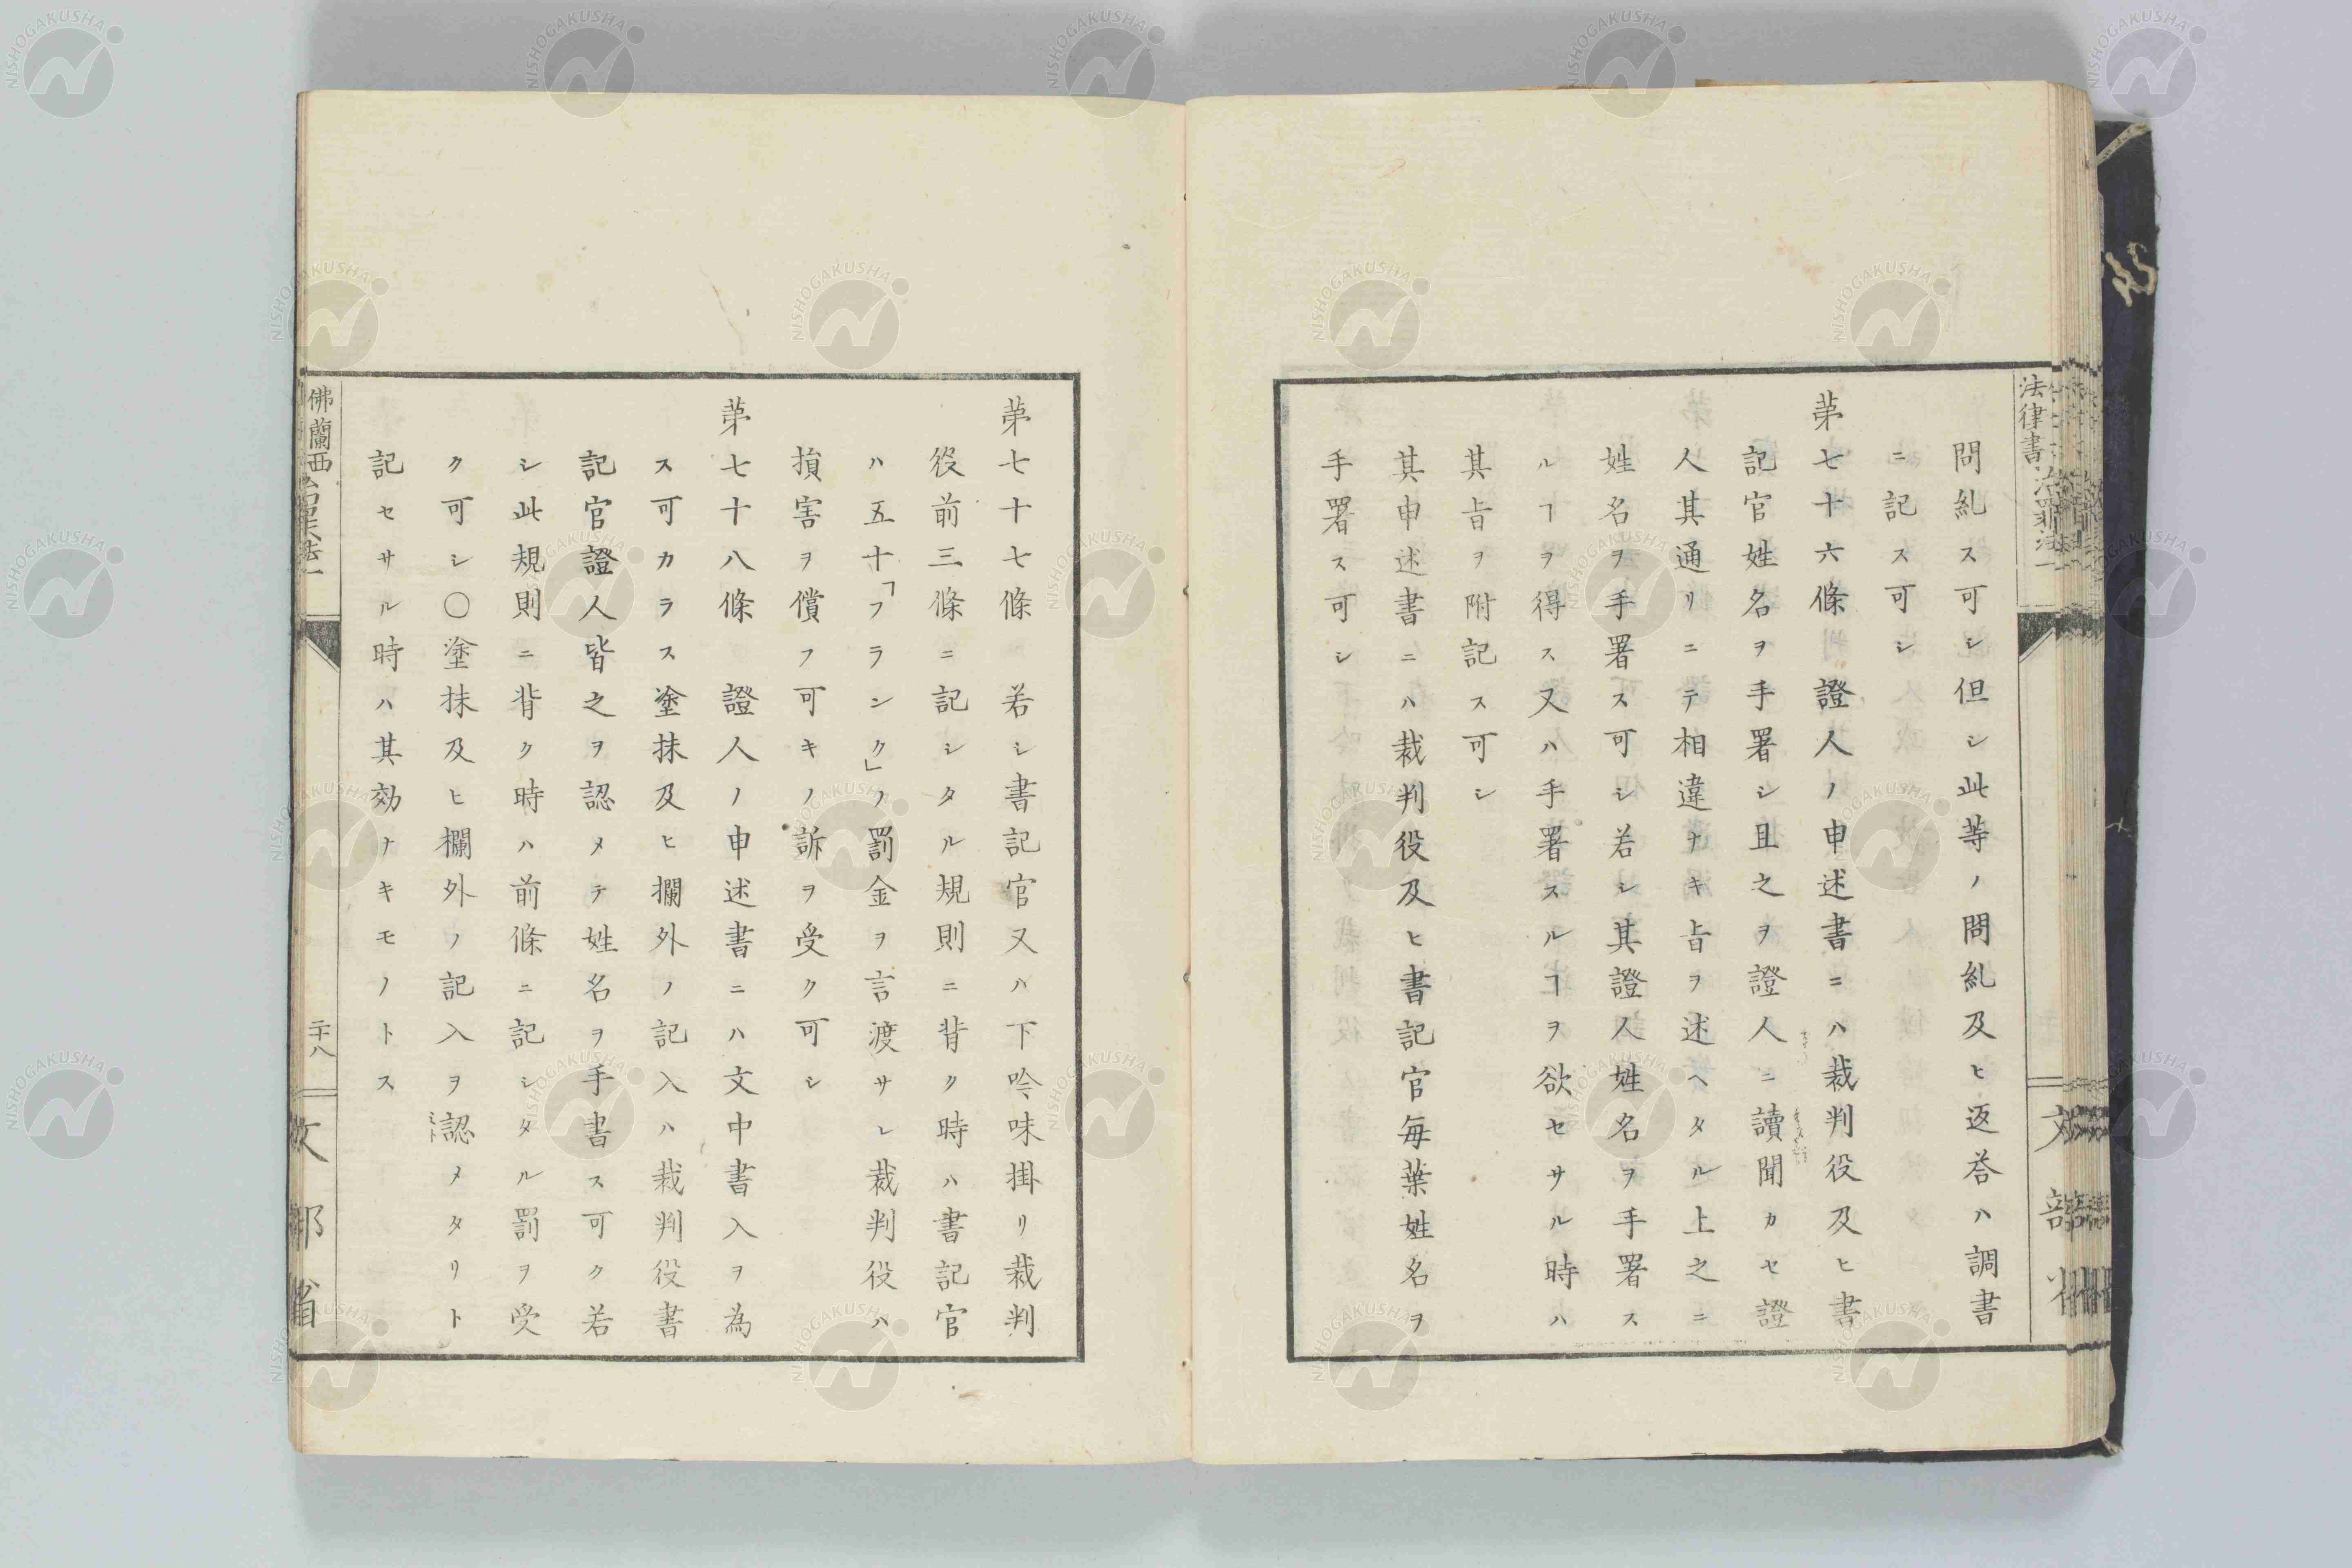 法律書 治罪法一
文部省
問糺ス可シ但シ此等ノ問糺及ヒ返荅ハ調書
ニ記ス可シ
苐七十六條 證人ノ申述書ニハ裁判役及ヒ書
記官姓名ヲ手署シ且之ヲ證人ニ讀聞カセ證
人其通リニテ相違ナキ旨ヲ述ヘタル上之ニ
姓名ヲ手署ス可シ若シ其證人姓名ヲ手署ス
ルヿヲ得ス又ハ手署スルヿヲ欲セサル時ハ
其旨ヲ附記ス可シ
其申述書ニハ裁判役及ヒ書記官每葉姓名ヲ
手署ス可シ
苐七十七條 若シ書記官又ハ下吟味掛リ裁判
役前三條ニ記シタル規則ニ背ク時ハ書記官
ハ五十「フランク」ノ罰金ヲ言渡サレ裁判役ハ
損害ヲ償フ可キノ訴ヲ受ク可シ
苐七十八條 證人ノ申述書ニハ文中書入ヲ為
ス可カラス塗抹及ヒ欄外ノ記入ハ裁判役書
記官證人皆之ヲ認メテ姓名ヲ手書ス可ク若
シ此規則ニ背ク時ハ前條ニ記シタル罰ヲ受
ク可シ〇塗抹及ヒ欄外ノ記入ヲ認メタリト
記セサル時ハ其効ナキモノトス
佛蘭西
二十八
文部省
NISHOGAKUSHA